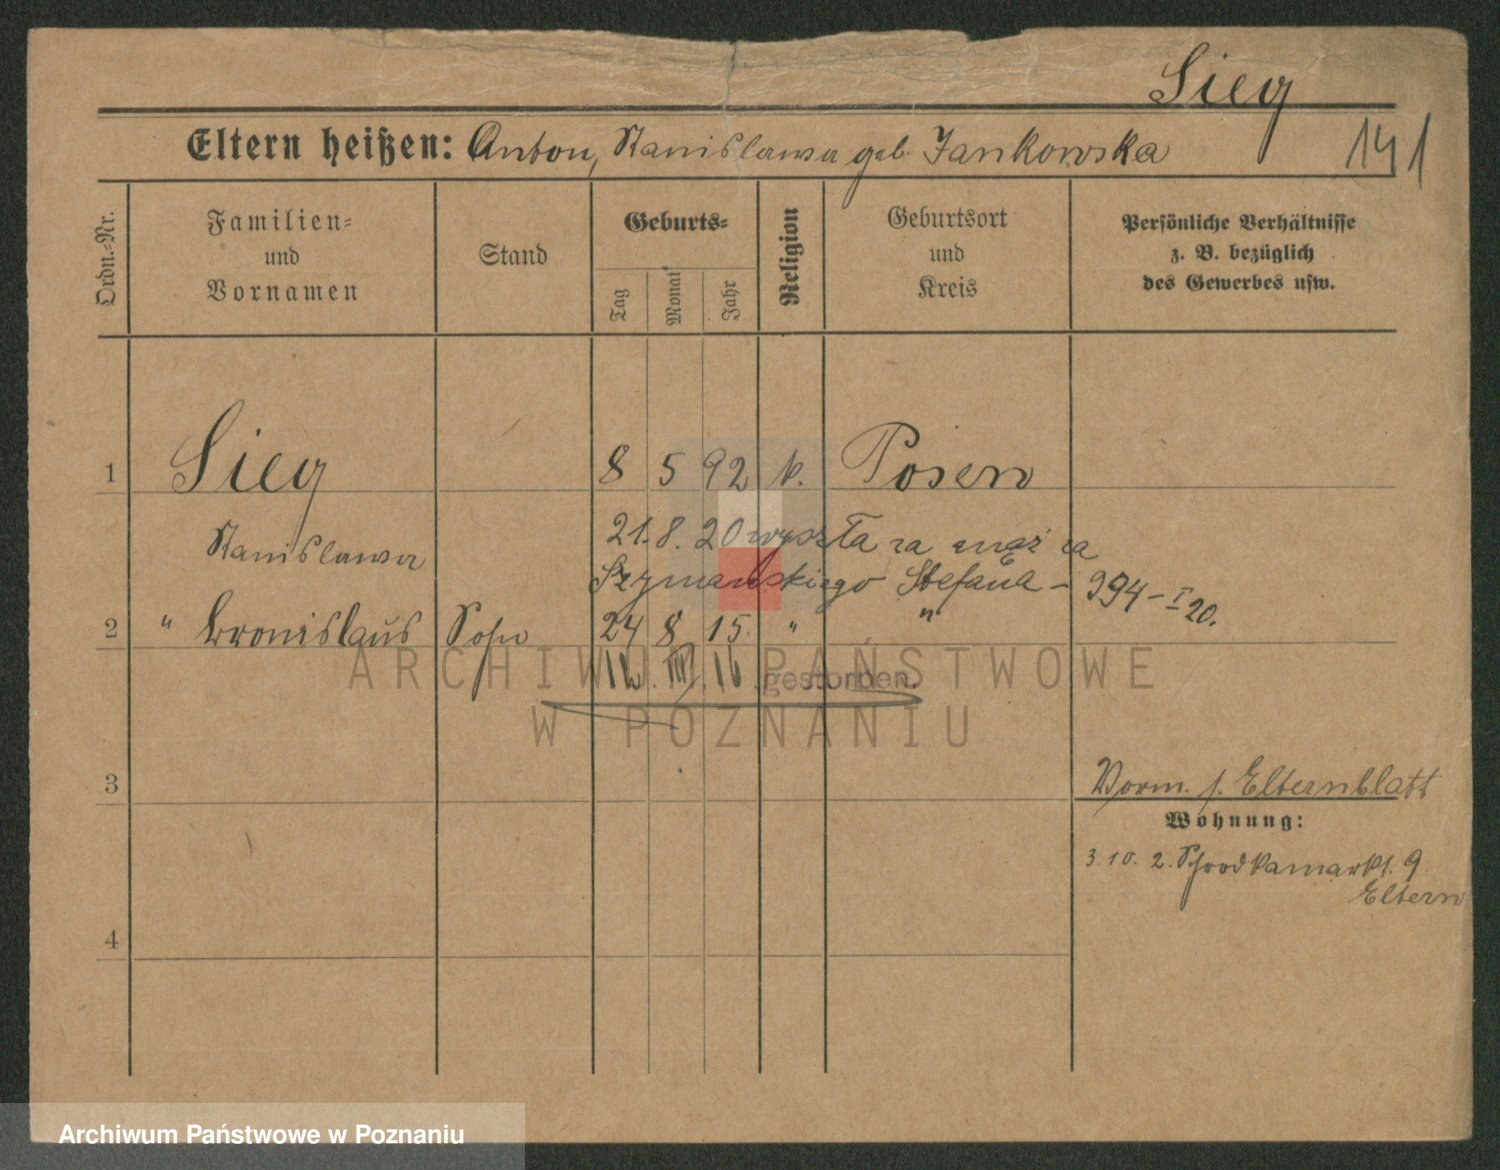 Sieg
Eltern heißen: Anton, Stanislawa geb. Jankowska
141
Ordn.-Nr.
Familien-
und
Vornamen
Stand
Geburts-
Tag
Monat
Jahr
Religion
Geburtsort
und
Kreis
Persönliche Verhältnisse
z. B. bezüglich
des Gewerbes usw.
1 Sieg 8 5 92 k. Posen
Stanislawa
21.8.20 wyszła za mąż za
Szymańskiego Stefana - 994-I 20.
2 " Bronislaus Sohn 24 8 15. " "
12. III. 16 gestorben.
3
Vorm. s. Elternblatt
Wohnung:
3.10. 2. Schrodkamarkt. 9
Eltern
4
ARCHIWUM PAŃSTWOWE
W POZNANIU
Archiwum Państwowe w Poznaniu